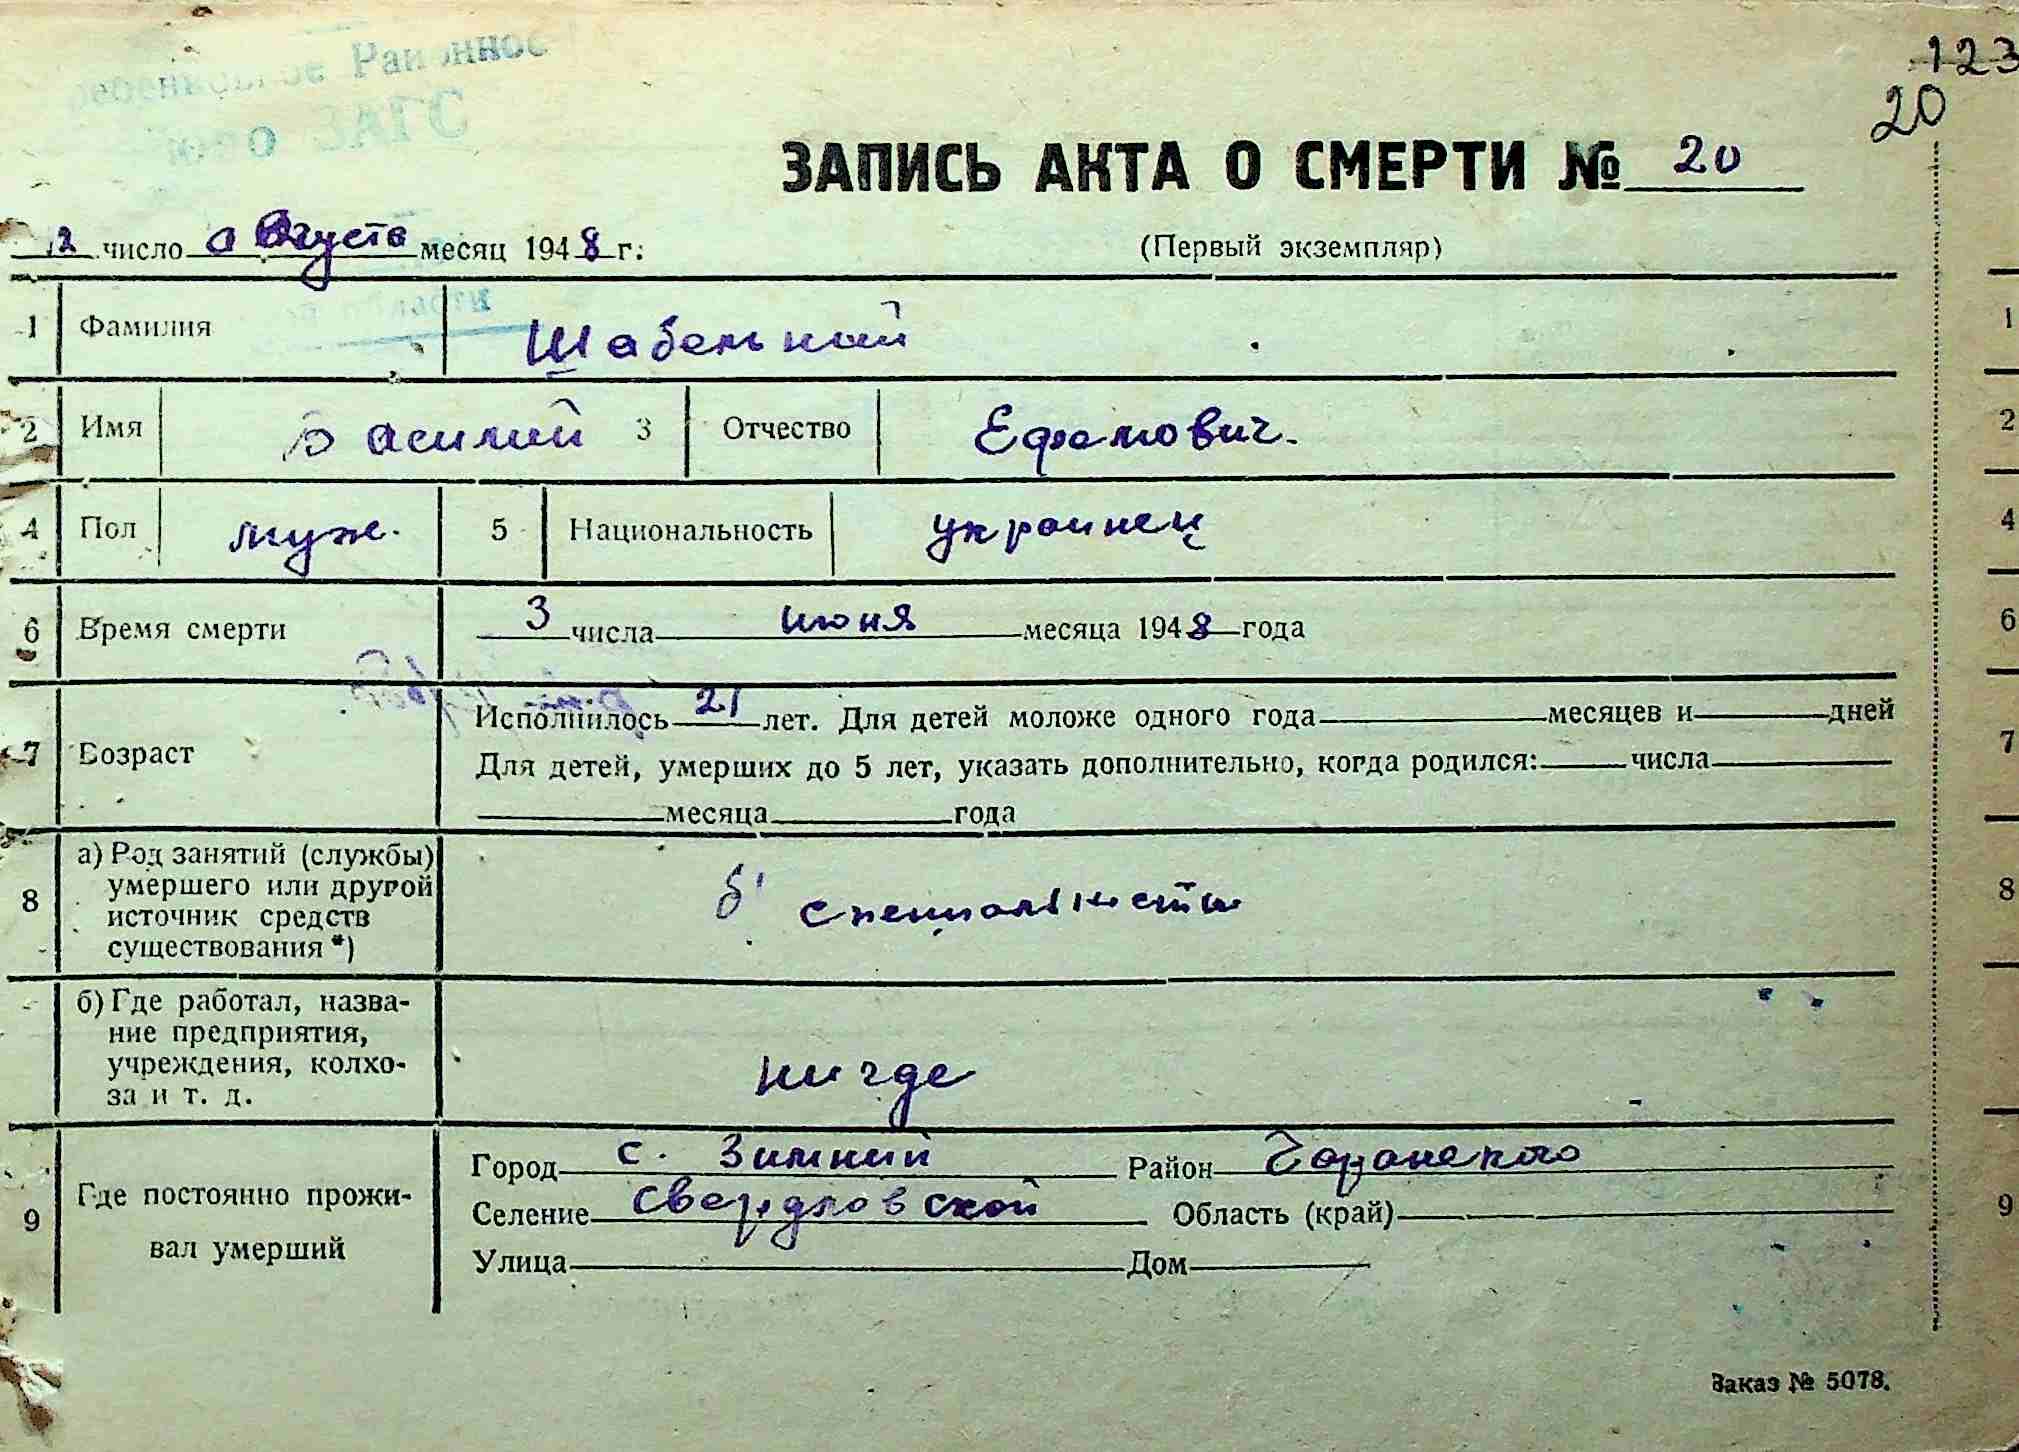 Районное
ЗАГС
123
20
ЗАПИСЬ АКТА О СМЕРТИ № 20
12 число августа месяц 1948 г.
(Первый экземпляр)
области
1 Фамилия Шабельний 1
2 Имя Василий 3 Отчество Ефамович. 2
4 Пол муж. 5 Национальность украинец 4
6 Время смерти 3 числа июня месяца 1948 года 6
Исполнилось 21 лет. Для детей моложе одного года месяцев и дней
7 Возраст Для детей, умерших до 5 лет, указать дополнительно, когда родился: числа 7
месяца года
а) Род занятий (службы)
8 умершего или другой б' специальисты 8
источник средств
существования *)
б) Где работал, назва-
ние предприятия,
учреждения, колхо- нигде
за и т. д.
Город с. Зимний Район
9 Где постоянно прожи- Селение Свердловской Область (край) 9
вал умерший Улица Дом
Заказ № 5078.